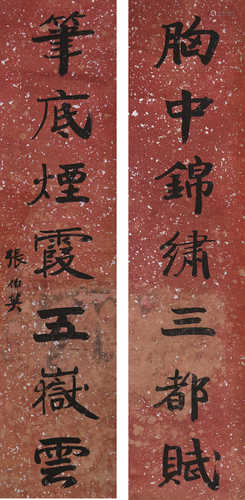 胸中錦繡三都賦
筆底煙霞五嶽雲
張伯英